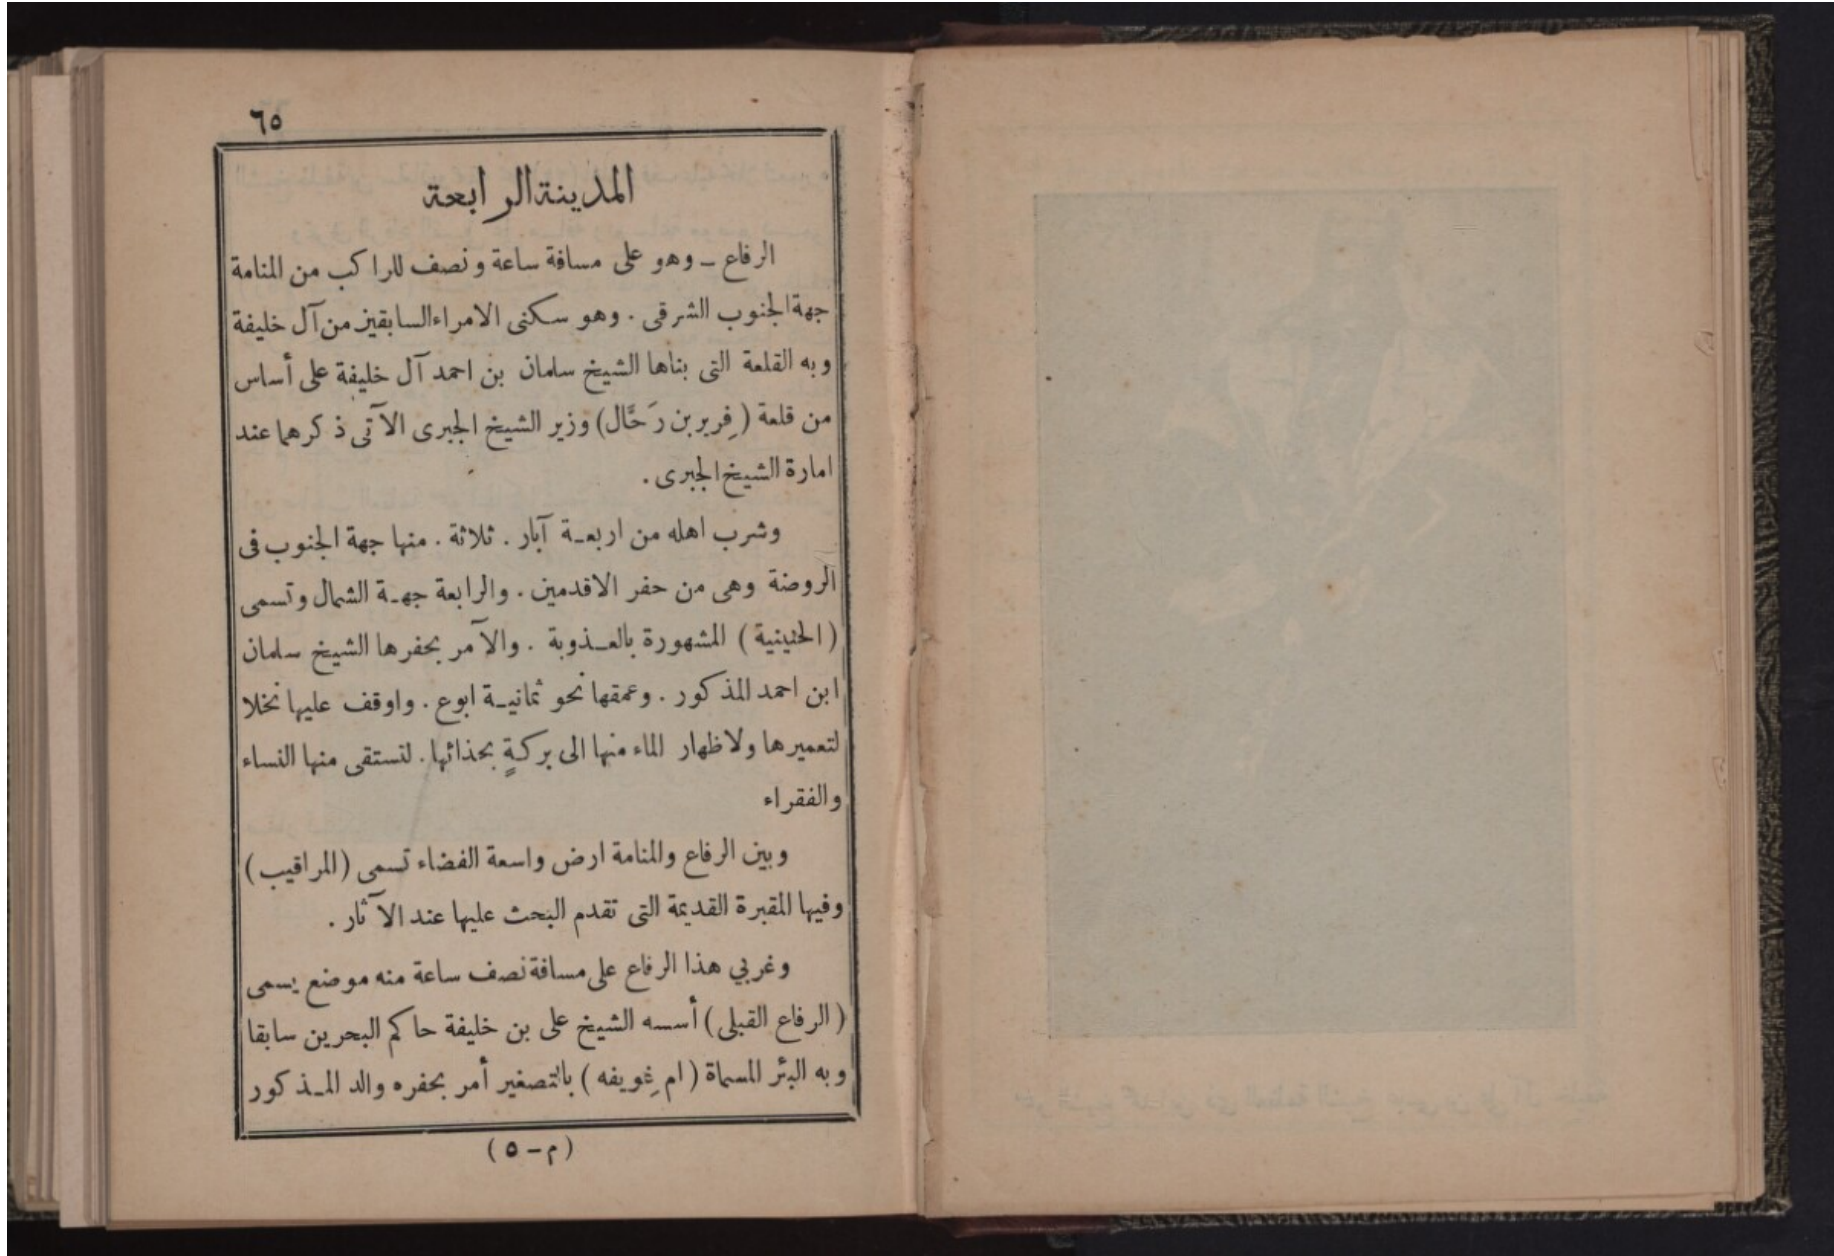 ٦٥
المدينة الرابعة
الرفاع – وهو على مسافة ساعة ونصف للراكب من المنامة
جهة الجنوب الشرقى . وهو سكنى الامراء السابقين من آل خليفة
وبه القلعة التى بناها الشيخ سلمان بن احمد آل خليفة على أساس
من قلعة ( فِرير بن رَحَّال) وزير الشيخ الجبرى الآتى ذكرهما عند
امارة الشيخ الجبرى .
وشرب اهله من اربعـة آبار . ثلاثة . منها جهة الجنوب فى
الروضة وهى من حفر الاقدمين . والرابعة جهـة الشمال وتسمى
( الحنينية ) المشهورة بالعـذوبة . والآمر بحفرها الشيخ سلمان
ابن احمد المذكور . وعمقها نحو ثمانيـة ابوع . واوقف عليها نخلا
لتعميرها ولاظهار الماء منها الى بركةٍ بحذائها . لتستقى منها النساء
والفقراء
وبين الرفاع والمنامة ارض واسعة الفضاء تسمى (المراقيب)
وفيها المقبرة القديمة التى تقدم البحث عليها عند الآثار .
وغربي هذا الرفاع على مسافة نصف ساعة منه موضع يسمى
( الرفاع القبلى ) أسسه الشيخ على بن خليفة حاكم البحرين سابقا
وبه البئر المسماة ( ام غِويفه ) بالتصغير أمر بحفره والد المـذكور
( م – ٥ )